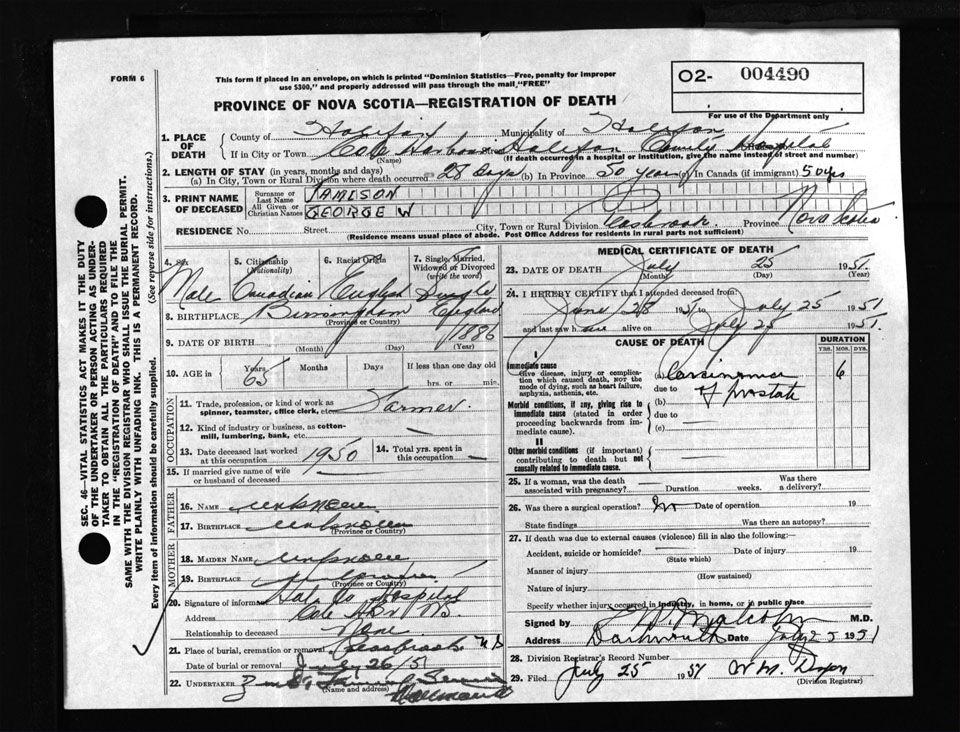 FORM 6
This form if placed in an envelope, on which is printed "Dominion Statistics—Free, penalty for improper
use $300," and properly addressed will pass through the mail "FREE"
O2- 004490
For use of the Department only
PROVINCE OF NOVA SCOTIA—REGISTRATION OF DEATH
1. PLACE OF DEATH
County of Halifax Municipality of Halifax
If in City or Town Cole Harbour Halifax County Hospital
(Name) (If death occurred in a hospital or institution, give the name instead of street and number)
2. LENGTH OF STAY (in years, months and days)
(a) In City, Town or Rural Division where death occurred 28 days (b) In Province 50 years (c) In Canada (if immigrant) 5 Dys
3. PRINT NAME OF DECEASED
Surname or Last Name JAMISON
All Given or Christian Names GEORGE W
RESIDENCE No. Street City, Town or Rural Division Province Nova Scotia
(Residence means usual place of abode. Post Office Address for residents in rural parts not sufficient)
4. Sex Male
5. Citizenship (Nationality) Canadian
6. Racial Origin English
7. Single, Married, Widowed or Divorced (write the word) Single
8. BIRTHPLACE Birmingham England
(Province or Country)
9. DATE OF BIRTH 1886
(Month) (Day) (Year)
10. AGE in Years 65 Months Days If less than one day old
hrs. or min.
OCCUPATION
11. Trade, profession, or kind of work as
spinner, teamster, office clerk, etc. Farmer.
12. Kind of industry or business, as cotton-
mill, lumbering, bank, etc. —
13. Date deceased last worked
at this occupation 1950
14. Total yrs. spent in
this occupation —
15. If married give name of wife
or husband of deceased —
FATHER
16. NAME unknown
17. BIRTHPLACE unknown
(Province or Country)
MOTHER
18. MAIDEN NAME unknown
19. BIRTHPLACE
(Province or Country)
20. Signature of informant Hospital
Address Cole Hbr NS.
Relationship to deceased None
21. Place of burial, cremation or removal NS
Date of burial or removal July 26/51
22. UNDERTAKER
(Name and address)
MEDICAL CERTIFICATE OF DEATH
23. DATE OF DEATH July 25 1951.
(Month) (Day) (Year)
24. I HEREBY CERTIFY that I attended deceased from:
June 28 1951 to July 25 1951
and last saw h alive on July 25 1951.
CAUSE OF DEATH
DURATION
YRS. MOS. DYS.
I
Immediate cause
Give disease, injury or complica-
tion which caused death, NOT the
mode of dying, such as heart failure,
asphyxia, asthenia, etc.
(a) Carcinoma 6
due to
(b) of prostate
Morbid conditions, if any, giving rise to
immediate cause (stated in order
proceeding backwards from im-
mediate cause).
due to —
(c) —
II
Other morbid conditions (if important)
contributing to death but not
causally related to immediate cause.
25. If a woman, was the death
associated with pregnancy? — Duration weeks. Was there
a delivery?
26. Was there a surgical operation? No Date of operation 19
State findings Was there an autopsy?
27. If death was due to external causes (violence) fill in also the following:—
Accident, suicide or homicide? — Date of injury 19
(State which)
Manner of injury
(How sustained)
Nature of injury
Specify whether injury occurred in industry, in home, or in public place
Signed by Malcolm M.D.
Address Dartmouth Date July 25 1951
28. Division Registrar's Record Number
29. Filed July 25 1951 W M. Dixon
(Division Registrar)
SEC. 46—VITAL STATISTICS ACT MAKES IT THE DUTY
OF THE UNDERTAKER OR PERSON ACTING AS UNDER-
TAKER TO OBTAIN ALL THE PARTICULARS REQUIRED
IN THE "REGISTRATION OF DEATH" AND TO FILE THE
SAME WITH THE DIVISION REGISTRAR WHO SHALL ISSUE THE BURIAL PERMIT.
WRITE PLAINLY WITH UNFADING INK. THIS IS A PERMANENT RECORD.
Every item of information should be carefully supplied. (See reverse side for instructions.)